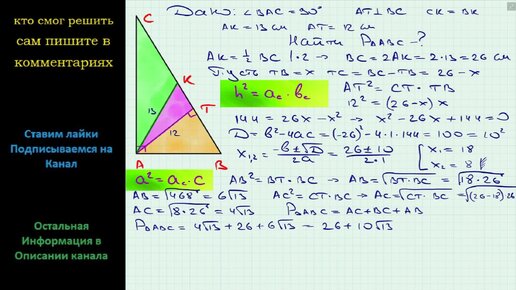 кто смог решить
сам пишите в
комментариях
Ставим лайки
Подписываемся на
Канал
Остальная
Информация в
Описании канала
C
K
T
13
12
A
B
Дано: ∠BAC = 90° AT⊥BC CK = BK
AK = 13 см AT = 12 см
Найти P△ABC - ?
AK = ½ BC |·2 → BC = 2AK = 2·13 = 26 см
Пусть TB = x TC = BC - TB = 26 - x
h² = a_c · b_c
AT² = CT · TB
12² = (26 - x) x
144 = 26x - x² → x² - 26x + 144 = 0
D = b² - 4ac = (-26)² - 4·1·144 = 100 = 10²
x₁,₂ = (-b ± √D)/2a = (26 ± 10)/(2·1) [ x₁ = 18
x₂ = 8
a² = a_c · c
AB² = BT·BC → AB = √(BT·BC) = √(18·26)
AB = √468 = 6√13 AC² = CT·BC → AC = √(CT·BC) = √((26-18)·26)
AC = √(8·26) = 4√13 P△ABC = AC + BC + AB
P△ABC = 4√13 + 26 + 6√13 = 26 + 10√13